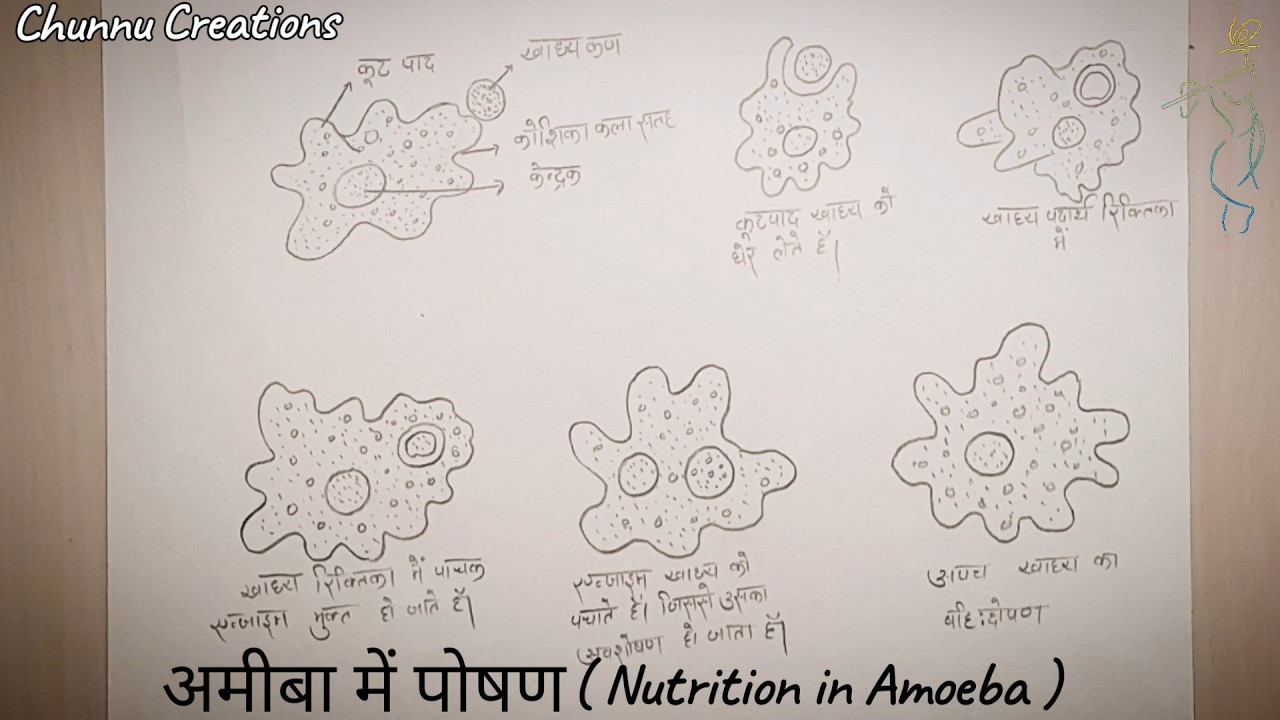 Chunnu Creations
कूट पाद
खाध्य कण
कोशिका कला सतह
केन्द्रक
कूटपाद खाध्य को
घेर लेते हैं।
खाध्य पदार्थ रिक्तिका
में
खाध्य रिक्तिका में पाचक
एन्जाइम मुक्त हो जाते हैं।
एन्जाइम खाध्य को
पचाते हैं। जिससे उसका
अवशोषण हो जाता है।
अपच खाध्य का
बहिःक्षेपण
अमीबा में पोषण ( Nutrition in Amoeba )